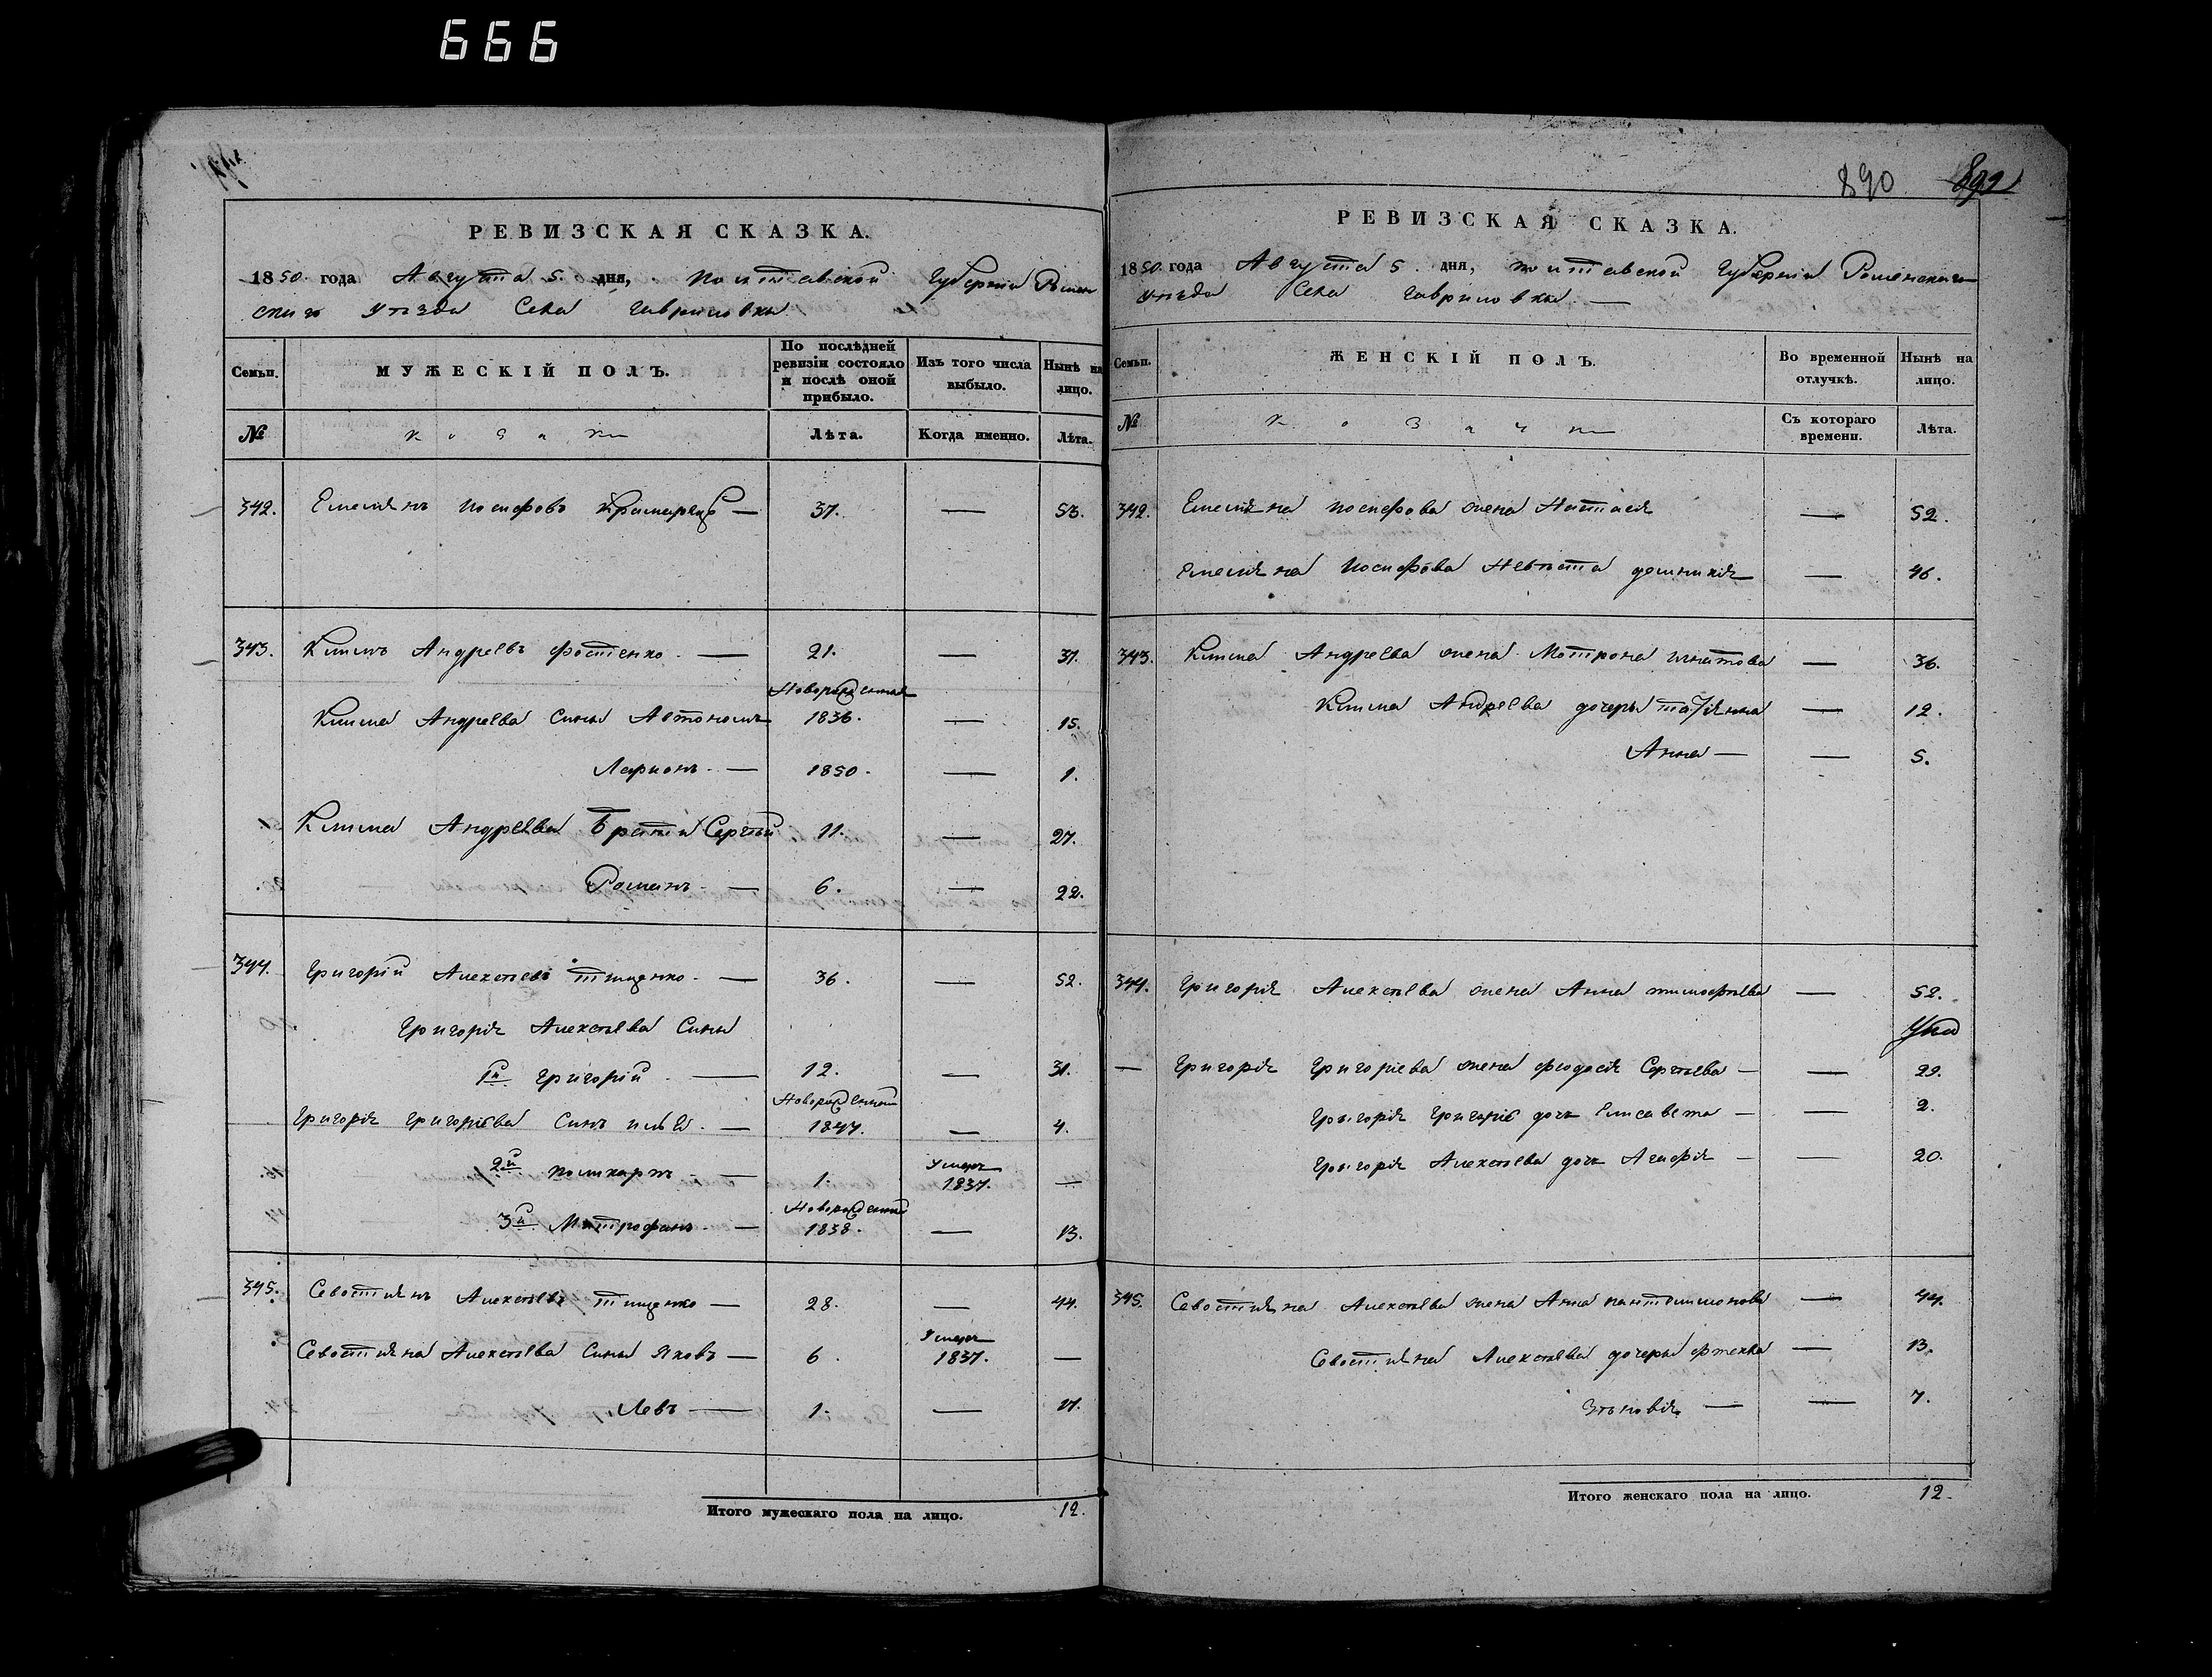 666
890 891
РЕВИЗСКАЯ СКАЗКА.
1850 года Августа 5. дня, Полтавской Губерніи Ромен
скаго уѣзда Села Гавриловки
Семьи. МУЖЕСКІЙ ПОЛЪ. По послѣдней ревизіи состояло и послѣ оной прибыло. Изъ того числа выбыло. Нынѣ на лицо.
№ Козаки Лѣта. Когда именно. Лѣта.
342. Емелянъ Иосифовъ — 37. — 53.
343. Климъ Андреевъ Фостенко — 21. — 37.
Новорожденный
Клима Андреева сыны Автономъ 1836. — 15.
Ларионъ — 1850. — 1.
Клима Андреева Братья Сергѣй 11. — 27.
Романъ — 6. — 22.
344. Григорій Алексѣевъ Тищенко — 36. — 52.
Григорія Алексѣева Сыны
1й Григорій — 12. — 31.
Новорожденный
Григорія Григоріева Сынъ Илья — 1847. — 4.
2й Поликарпъ — 1. Умеръ 1837. —
Новорожденный
3й Митрофанъ — 1838. — 13.
345. Севостиянъ Алексѣевъ Тищенко — 28. — 44.
Севостияна Алексѣева Сыны Яковъ — 6. Умеръ 1837. —
Левъ — 1. — 17.
Итого мужескаго пола на лицо. 12.
РЕВИЗСКАЯ СКАЗКА.
1850 года Августа 5. дня, Полтавской Губерніи Роменскаго
уѣзда Села Гавриловки —
Семьи. ЖЕНСКІЙ ПОЛЪ. Во временной отлучкѣ. Нынѣ на лицо.
№ Козачки Съ котораго времени. Лѣта.
342. Емеляна Иосифова жена Настасія — 52.
Емеляна Иосифова Невѣста Домникія — 46.
343. Клима Андреева жена Мотрона Игнатова — 36.
Клима Андреева дочеры Татіянна — 12.
Анна — — 5.
344. Григорія Алексѣева жена Анна Тимофѣева — 52.
— Григорія Григоріева жена Феодосія Сергѣева — — 29.
Григорія Григоріе дочь Елисавета — — 2.
Григорія Алексѣева дочь Агафія — — 20.
345. Севостияна Алексѣева жена Анна Пантелимонова — 44.
Севостияна Алексѣева дочеры Фтекла — 13.
Зѣновія — — 7.
Итого женскаго пола на лицо. 12.